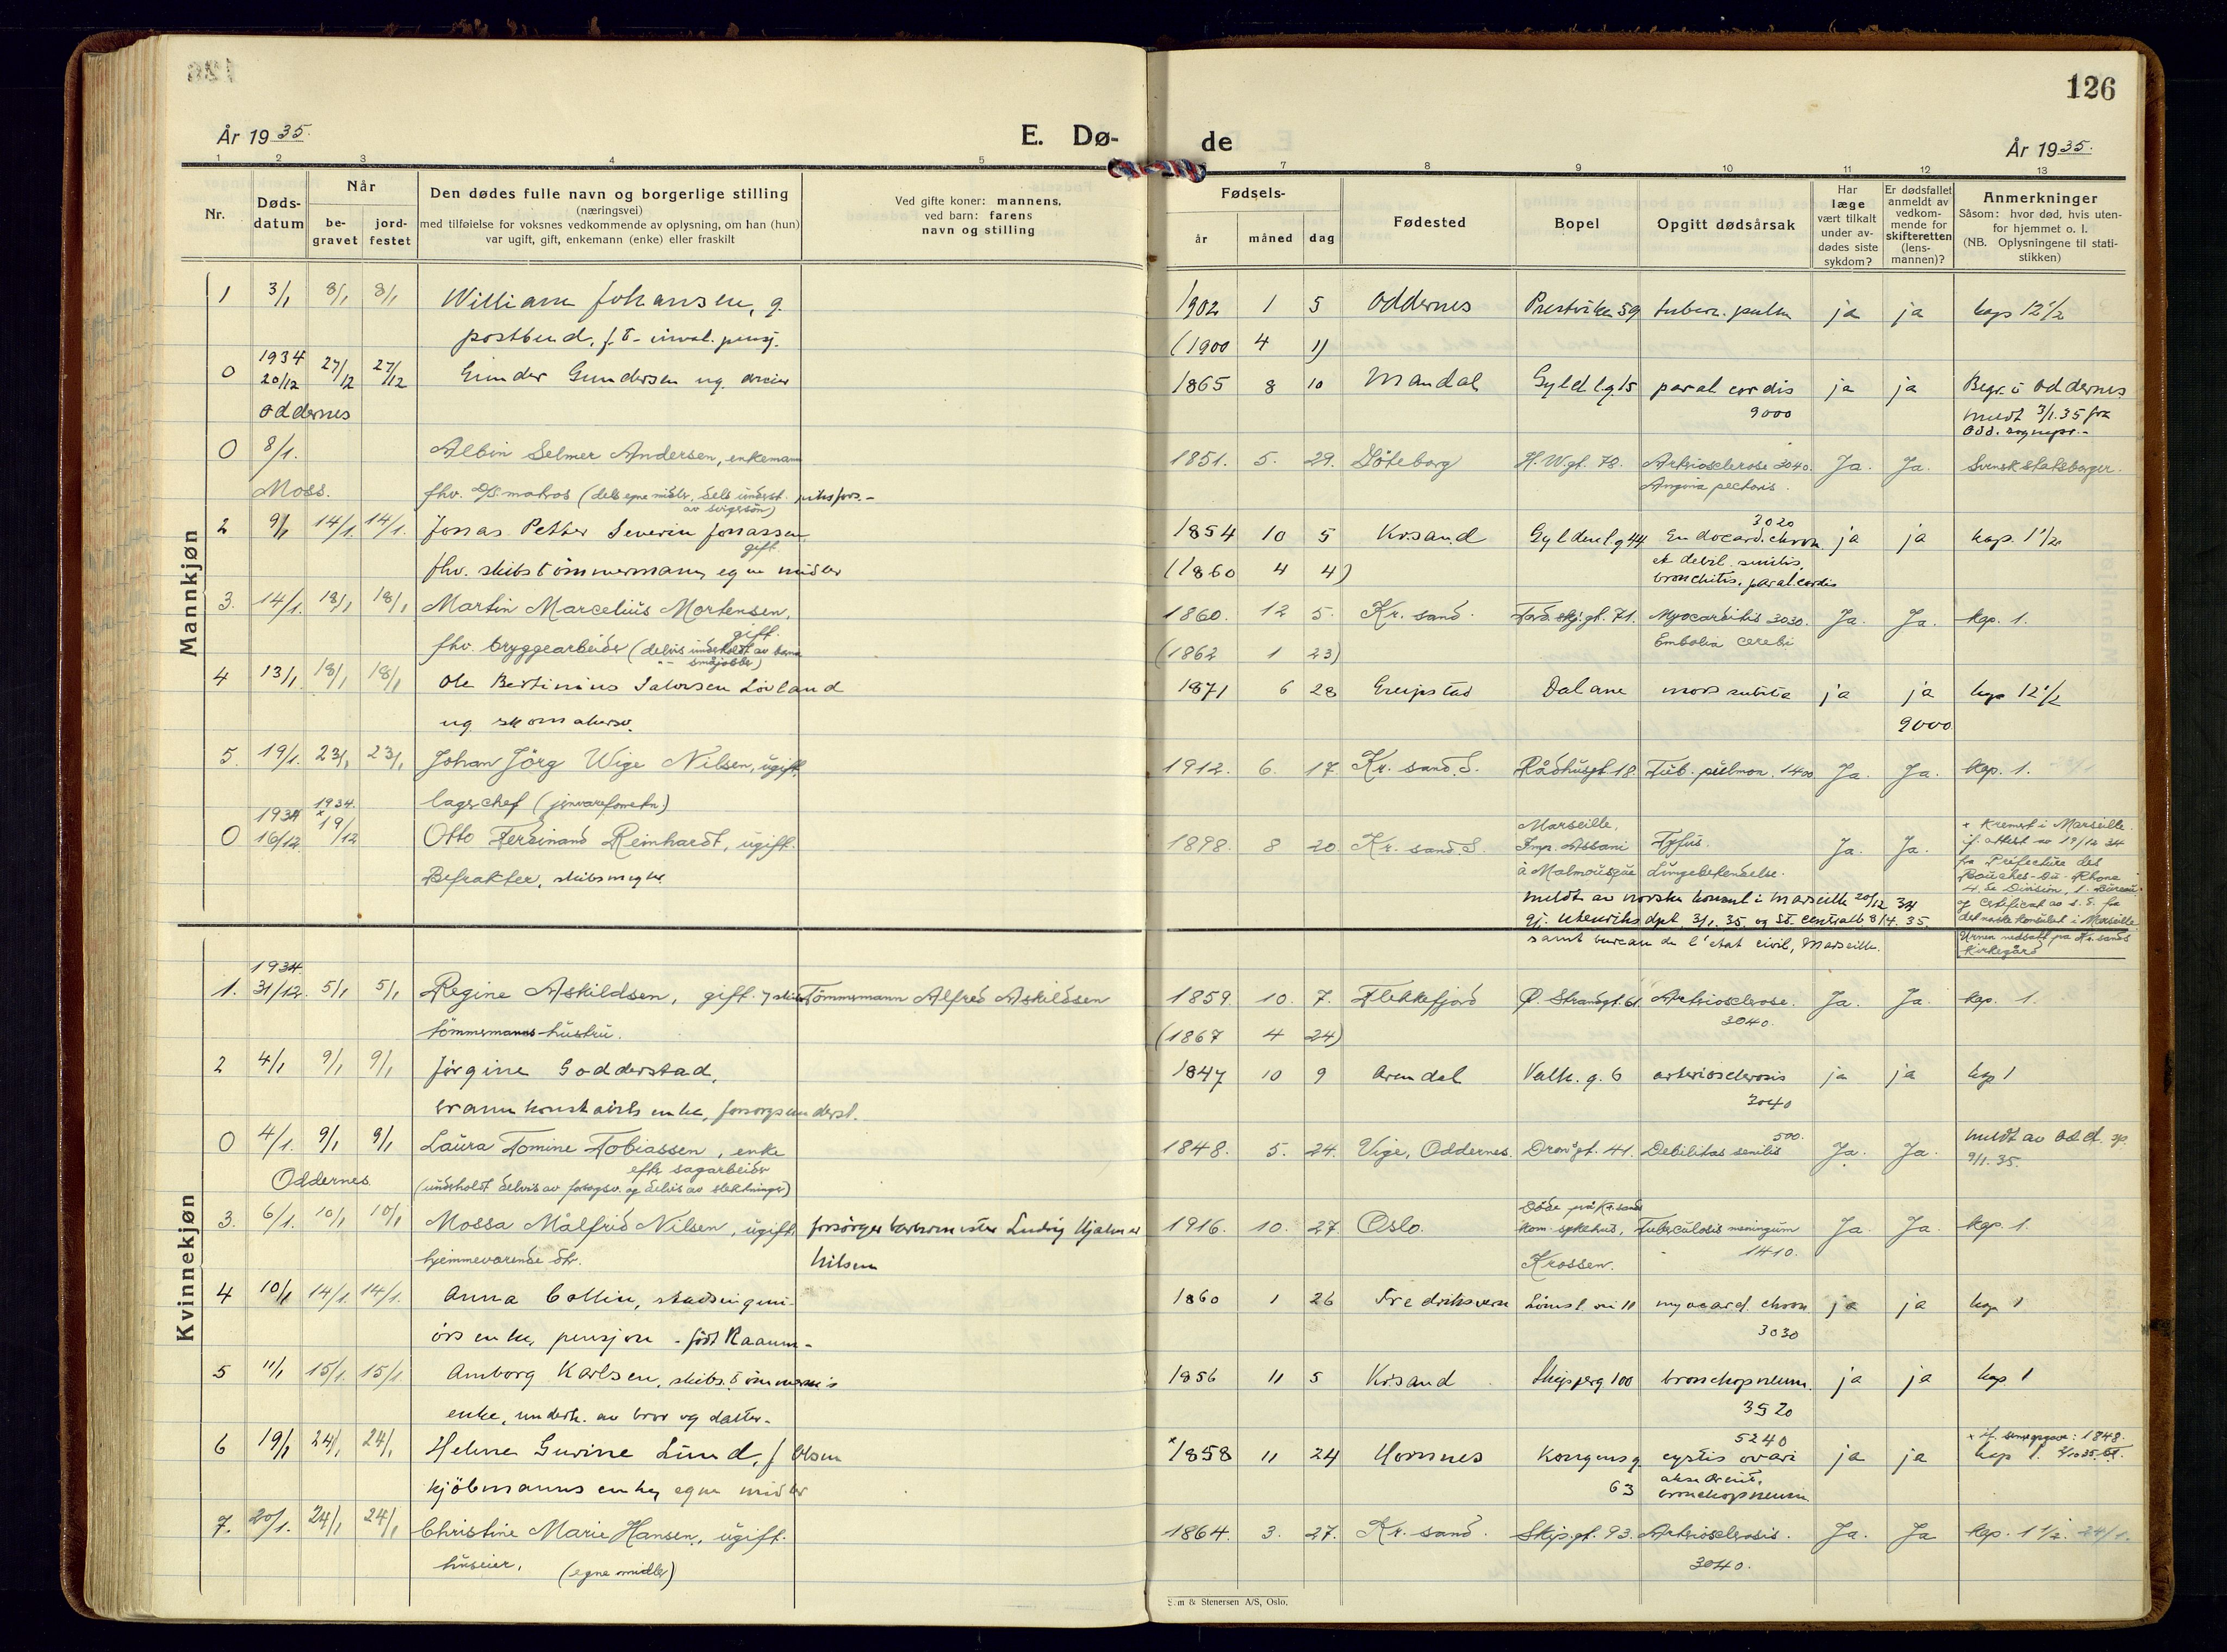 126
År 1935.
E. Dø-
de
År 1935.
1 2 3 4 5 7 8 9 10 11 12 13
Nr.
Døds-
datum
Når
be-
gravet
jord-
festet
Den dødes fulle navn og borgerlige stilling
(næringsvei)
med tilføielse for voksnes vedkommende av oplysning, om han (hun)
var ugift, gift, enkemann (enke) eller fraskilt
Ved gifte koner: mannens,
ved barn: farens
navn og stilling
Fødsels-
år måned dag
Fødested
Bopel
Opgitt dødsårsak
Har
læge
vært tilkalt
under av-
dødes siste
sykdom?
Er dødsfallet
anmeldt av
vedkom-
mende for
skifteretten
(lens-
mannen)?
Anmerkninger
Såsom: hvor død, hvis uten-
for hjemmet o. l.
(NB. Oplysningene til stati-
stikken)
Mannkjøn
1 3/1 8/1 8/1 William Johansen, g. 1902 1 5 Oddernes Prestviken 59 tuberc. pulm ja ja kap 12 1/2
postbud, f. t. inval. pensj. (1900 4 1)
0 1934 20/12 27/12 27/12 Gunder Gundersen ug. 1865 8 10 Mandal Gyldlg. 15 paral cordis ja ja Begr. i Oddernes
Oddernes 9000 meldt 3/1.35 fra
Odd. sognepr.-
0 8/1. Albin Selmer Andersen, enkemann 1851. 5. 29. Göteborg H. W. gt. 78. Arteriosclerose 3040. Ja. Ja. Svensk statsborger.
Moss. fhv. D/S. matros (dels egne midler, dels underst. av svigersön) Angina pectoris.
2 9/1 14/1. 14/1. Jonas Petter Severin Jonassen, gift 1854 10 5 Krsand Gyldenlg 44 3020 Endocard. chron. ja ja kap. 1 1/2
fhv. skibstömmermann, egne midler (1860 4 4) et debil. senilis,
bronchitis, paral. cordis
3. 14/1. 18/1 18/1 Martin Marcelius Mortensen, gift. 1860. 12 5. Kr. sand. 71. Myocarditis 3030. Ja. Ja. kap. 1.
fhv. bryggearbeider (delvis underholdt av barna (1862 1 23) Embolia cerebi
-"- småjobber)
4 13/1 18/1 18/1 Ole Bertinius Løvland 1871 6 28 Greipstad Dalane mors subita ja ja kap 12 1/2
ug skomakersv. 9000
5. 19/1. 23/1 23/1 Johan Jörg Wige Nilsen, ugift. 1912. 6. 17. Kr. sand. S. Rådhusgt. 18. Tub. pulmon. 1400 Ja. Ja. kap. 1.
lagerchef (jernvareforretn.)
0 1934 16/12. 1934. x 19/12 Otto Ferdinand Reinhardt, ugift. 1898. 8 20 Kr. sand. S. Marseille, Imp. Assani Tyfus. Ja. Ja. x Kremert i Marseille
Befrakter, skibsmegler à Malmousque Lungebetendelse. if. attest av 19/12 34
fra Préfecture des
Bouches-du-Rhone
4. de Division, 1. Bureau
meldt av norske konsul i Marseille 20/12 34 og certificat av s. d. fra
gj. Utenriksdpt. 3/1. 35. og St. Centralb. 8/4. 35. det norske konsulat i Marseille.
samt bureau de l'état civil, Marseille. Urnen nedsatt på Kr.sands
Kirkegård
Kvinnekjøn
1. 1934. 31/12. 5/1 5/1 Regine Askildsen, gift. Tömmermann Alfred Askildsen 1859. 10. 7. Flekkefjord Ø. Strandgt. 61. Arteriosclerose. Ja. Ja. kap. 1.
tömmermannshustru. (1867 4 24) 3040.
2 4/1 9/1 9/1 Jörgine Godderstad, 1847 10 9 Arendal Valh. g. 6 arteriosclerosis ja ja kap 1
brannkonstabels enke, forsorgsunderst. 3040
0 4/1. 9/1 9/1 Laura Tomine Tobiassen, enke 1848. 5. 24. Vige, Oddernes. Dronn. gt. 41. Debilitas senilis 500. Ja. Ja. meldt av Odd. sp.
Oddernes efter sagarbeider 9/1. 35.
(underholdt delvis av forsorgsv. og delvis av slektninger)
3. 6/1. 10/1 10/1 Mossa Målfrid Nilsen, ugift, forsörger Ludvig Hjalmar 1916. 10. 27. Oslo. Döde på Kr.sands kom. sykehus, Tuberculosis meningium Ja. Ja. kap. 1.
hjemmeværende dtr. Nilsen Krossen. 1410.
4 10/1 14/1. 14/1. Anna Collin, stadsingeni- 1860 1 26 Fredriksvern 11 myocard. chron ja ja kap 1
örs enke, pensjon - født Raaum- 3030
5 11/1 15/1. 15/1 Amborg Karlsen, skibstömmerm's 1856 11 5 Krsand Skipperg 100 bronchopneum. ja ja kap. 1
enke, underh. av bror og datter- 3520
6 19/1 24/1 24/1 Helene Gurine Lund, f Olsen x 1858 11 24 Hornnes Kongensg. 63 5240 cystis ovari ja ja x if. 1848.
kjöbmanns enke, egne midler bronchopneum. kap 1.
7. 20/1. 24/1 24/1 Christine Marie Hansen, ugift. 1864. 3. 27. Kr. sand. Skip.gt. 93. Arteriosclerosis. Ja. Ja kap. 1 1/2. 24/1.
huseier, (egne midler) 3040.
& Stenersen A/S, Oslo.